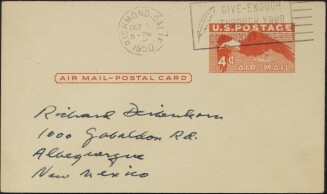 RICHMOND, CALIF.
OCT
6 - PM
1950
GIVE-ENOUGH
THROUGH YOUR
U.S. POSTAGE
4¢
AIR MAIL
AIR MAIL-POSTAL CARD
Richard Diebenkorn
1000 Gabaldon Rd.
Albequerque
New Mexico